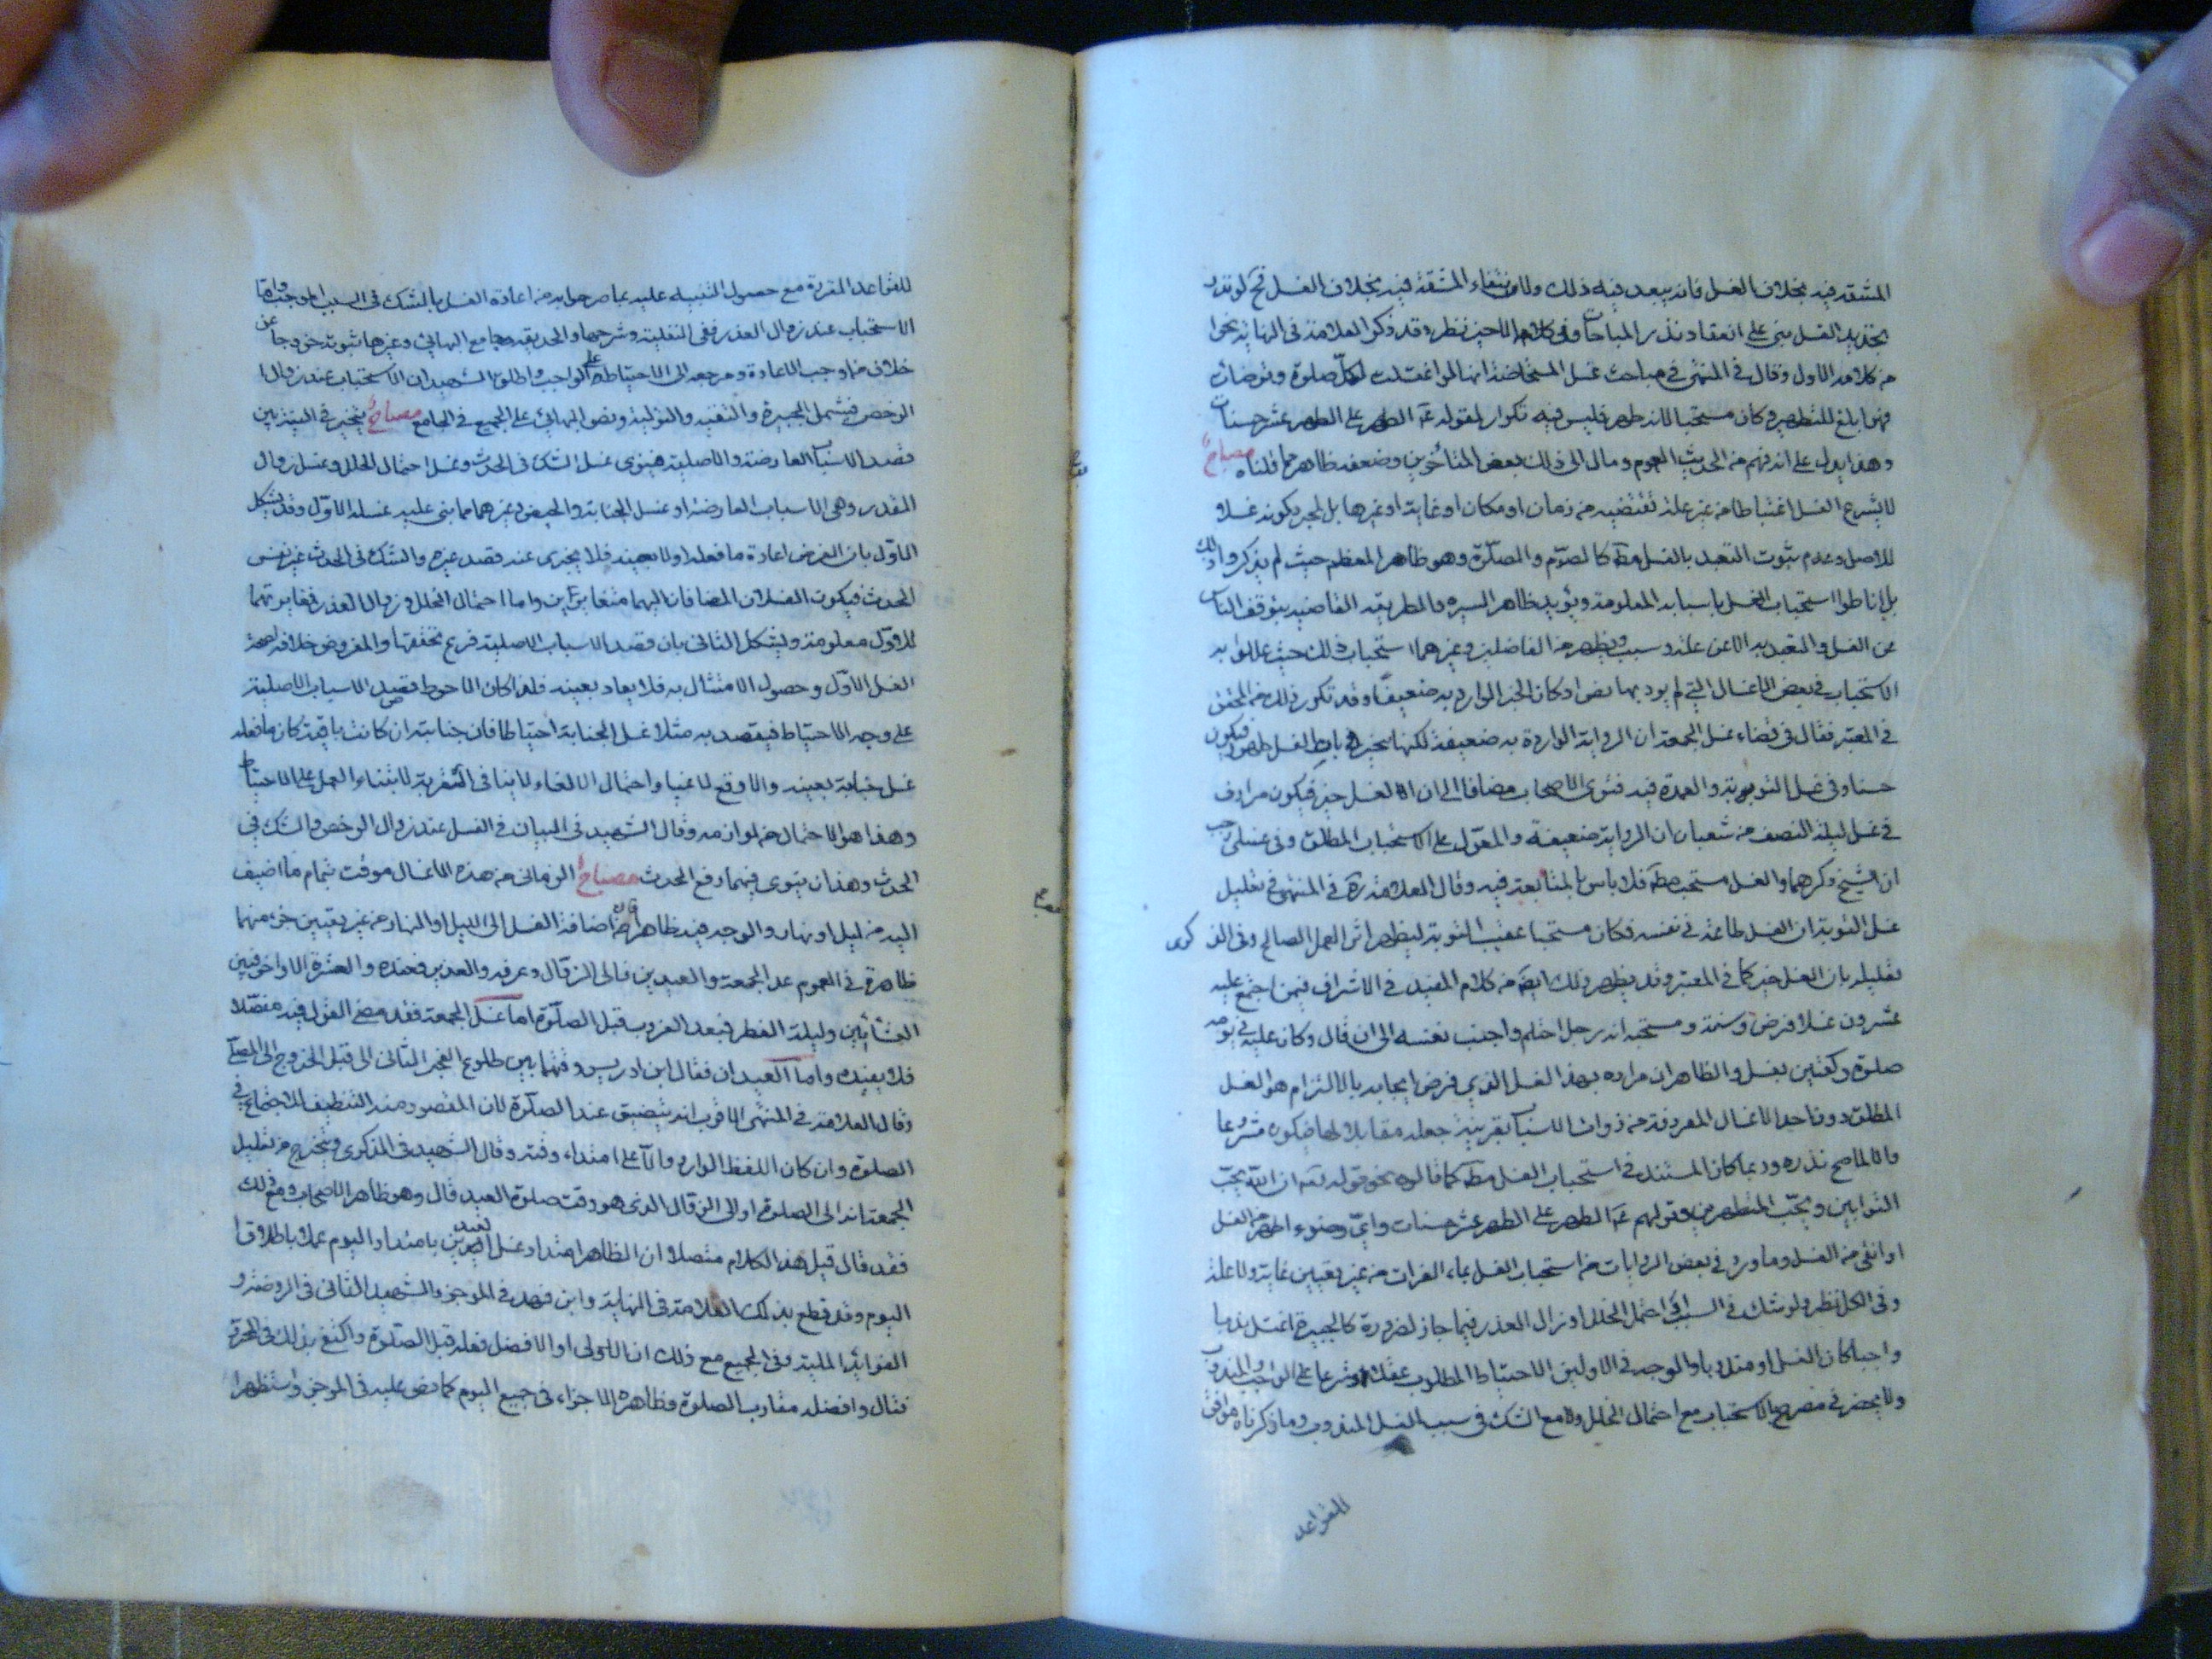 المشقة فيه بخلاف الغسل فانه يبعد فيه ذلك ولانتفاء المشقة فيه بخلاف الغسل نعم لو نذر
تجديد الغسل بنى على انعقاد نذر المباحات وفى كلامه الاخير نظر وقد ذكر العلامة فى النهاية نحوا
من كلامه الاول وقال فى المنتهى فى مباحث غسل المستحاضة انها لو اغتسلت لكل صلوة وتوضأت
فهو ابلغ للتطهير وكان مستحبا لانه طهر فليس فيه تكرار لقوله عم الطهر على الطهر عشر حسنات
وهذا يدل على انه فهم من الحديث العموم ومال الى ذلك بعض المتأخرين وضعفه ظاهر مما قلناه مصباح
لا يشرع الغسل اغتباطا من غير علة تقتضيه من زمان او مكان او غاية او غيرها بل لمجرد كونه غسلا
للاصل وعدم ثبوت التعبد بالغسل مطم كالصوم والصلوة وهو ظاهر المعظم حيث لم يذكروا ذلك
بل اناطوا استحباب الغسل باسبابه المعلومة ويؤيده ظاهر السيرة والطريقة القاضيه بتوقف الناس
عن الغسل والتعبد به الا عن علة وسبب ويظهر من الفاضلين وغيرهما استحباب ذلك حيث عللوا به
الاستحباب فى بعض الاغسال التى لم يرد بها نص او كان الخبر الوارد به ضعيفا وقد تكرر ذلك من المحقق
فى المعتبر فقال فى قضاء غسل الجمعة ان الرواية الواردة به ضعيفة لكنها تنجبر بان الغسل طهور فيكون
حسنا وفى غسل التوبة والعمدة فيه فتوى الاصحاب مضافا الى ان الغسل خير فيكون مرادف
فى غسل ليلة النصف من شعبان ان الرواية ضعيفة والمعول على الاستحباب المطلق وفى غسلى رجب
ان الشيخ ذكرهما والغسل مستحب مطم فلا باس بالمتابعة فيه وقال العلامة ره فى المنتهى فى تعليل
غسل التوبة ان الغسل طاعة فى نفسه فكان مستحبا عقيب التوبة ليظهر اثر العمل الصالح وفى الذكرى
تعليله بان الغسل خير كما فى المعتبر وقد يظهر ذلك ايضا من كلام المفيد فى الاشراف فيمن اجتمع عليه
عشرون غسلا فرض وسنة ومستحب انه رجل احتلم واجنب نفسه الى ان قال وكان عليه فى يومه
صلوة ركعتين بغسل والظاهر ان مراده بهذا الغسل الذى فرض ايجابه بالالتزام هو الغسل
المطلق دون احد الاغسال المعروفة من ذوات الاسباب بقرينة جعله مقابلا لها فيكون مشروعا
والا لما صح نذره وربما كان المستند فى استحباب الغسل مطم كما قالوه نحو قوله تعم ان الله يحب
التوابين ويحب المتطهرين وقولهم عم الطهر على الطهر عشر حسنات واى وضوء اطهر من الغسل
او انقى من الغسل وما ورد فى بعض الروايات من استحباب الغسل بماء الفرات من غير تعيين غاية ولا علة
وفى الكل نظر ولو شك فى السبب او احتمل الخلل او زال العذر فيما جاز لضرورة كالجبيرة اغتسل ندبا
واجبا كان الغسل او مندوبا والوجه فى الاولين الاحتياط المطلوب عقلا وشرعا على الواجب والمندوب
ولا يحضرنى مصرح بالاستحباب مع احتمال الخلل ولا مع الشك فى سبب الغسل المندوب وما ذكرناه موافق
للقواعد
للقواعد المقررة مع حصول التنبيه عليه بما صرحوا به من اعادة الغسل بالشك فى السبب الموجب واما
الاستحباب عند زوال العذر ففى النفلية وشرحيها والحديقة وجامع البهائى وغيرها ثبوته خروجا عن
خلاف من اوجب الاعادة ومرجعه الى الاحتياط على الواجب واطلق الشهيدان الاستحباب عند زوال
الرخص فيشمل الجبيرة والتقية والتولية ونص البهائى على الجميع فى الجامع مصباح يتخير فى النية بين
قصد الاسباب العارضة والاصلية فينوى غسل الشك فى الحدث وغسل احتمال الخلل وغسل زوال
العذر وهى الاسباب العارضة او غسل الجنابة والحيض وغيرهما مما بنى عليه غسله الاول وقد يشكل
الاول بان الغرض اعادة ما فعله اولا بعينه فلا يجزى عند قصد غيره والشك فى الحدث غير نفس
الحدث فيكون الغسلان المضافان اليهما متغايرين واما احتمال الخلل وزوال العذر فمغايرتهما
للاول معلومة ويشكل الثانى بان قصد الاسباب الاصلية فرع تحققها والمفروض خلافه لصحة
الغسل الاول وحصول الامتثال به فلا يعاد بعينه فلذا كان الاحوط قصد الاسباب الاصلية
على وجه الاحتياط فيقصد به مثلا غسل الجنابة احتياطا فان جنابته ان كانت باقية كان ما فعله
غسل جنابة بعينه والا وقع لاغيا واحتمال الالغاء لا ينافى التقرب لابتناء العمل على الاحتياط
وهذا هو الاحتمال من لوازمه وقال الشهيد فى البيان فى الغسل عند زوال الرخص والشك فى
الحدث وهذان ينوى فيهما رفع الحدث مصباح الزمانى من هذه الاغسال موقت بتمام ما اضيف
اليه من ليل او نهار والوجه فيه ظاهر فان اضافة الغسل الى الليل او النهار من غير تعيين جزء منهما
ظاهرة فى العموم عدا الجمعة والعيدين فالى الزوال وعرفه والغدير فعنده والعشرة الاواخر فبين
العشائين وليلة الفطر فبعد الغروب قبل الصلوة اما غسل الجمعة فقد مضى القول فيه مفصلا
فلا نعيده واما العيدان فقال ابن ادريس وقتهما بين طلوع الفجر الثانى الى قبل الخروج الى المصلى
وقال العلامة فى المنتهى الاقرب انه يتضيق عند الصلوة لان المقصود منه التنظيف للاجتماع فى
الصلوة وان كان اللفظ الوارد دالا على امتداد وقته وقال الشهيد فى الذكرى ويتخرج من تعليل
الجمعة انه الى الصلوة او الى الزوال الذى هو وقت صلوة العيد قال وهو ظاهر الاصحاب ومع ذلك
فقد قال قبل هذا الكلام متصلا ان الظاهر امتداد غسل العيدين بامتداد اليوم عملا باطلاق
اليوم وقد قطع بذلك العلامة فى النهاية وابن فهد فى الموجز والشهيد الثانى فى الروضة و
الفوائد الملية وفى الجميع مع ذلك ان الاولى او الافضل فعله قبل الصلوة واكتفى بذلك فى المحرر
فقال وافضله مقارب الصلوة وظاهره الاجزاء فى جميع اليوم كما نص عليه فى الموجز واستظهر